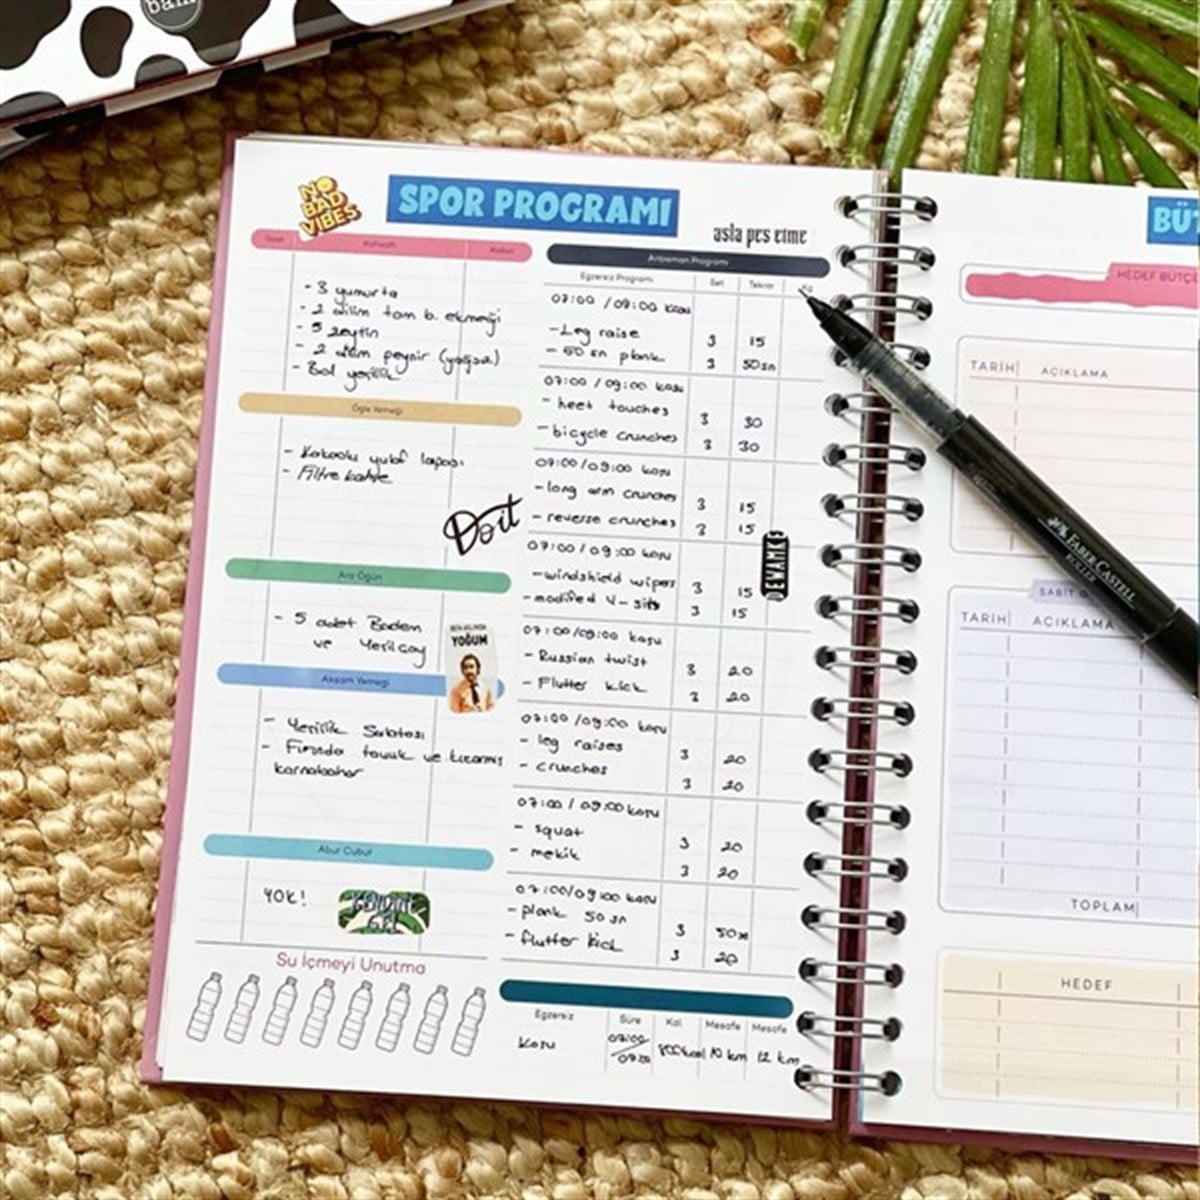 NO BAD VIBES
SPOR PROGRAMI
asla pes etme
Kahvaltı
- 3 yumurta
- 2 dilim tam b. ekmeği
- 5 zeytin
- 2 dilim peynir (yağsız)
- Bol yeşillik
Öğle Yemeği
- Kakaolu yulaf lapası
- Filtre kahve
Do it
Ara Öğün
- 5 adet Badem
ve Yeşilçay
YOĞUM
Akşam Yemeği
- Yeşillik Salatası
- Fırında tavuk ve kızarmış
karnabahar
Abur Cubur
YOK!
KENDİNE GEL
Su İçmeyi Unutma
Antrenman Programı
Egzersiz Programı Set Tekrar Kg
07:00 / 09:00 kosu
- Leg raise 3 15
- 50 sn plank 3 50sn
07:00 / 09:00 kosu
- heet touches 3 30
- bicycle crunches 3 30
07:00 / 09:00 kosu
- long arm crunches 3 15
- reverse crunches 3 15
07:00 / 09:00 kosu
- windshield wipers 3 15
- modified V-sits 3 15
DEVAMKE
07:00/09:00 kosu
- Russian twist 3 20
- Flutter kick 3 20
07:00 /09:00 kosu
- leg raises 3 20
- crunches 3 20
07:00 / 09:00 kosu
- squat 3 20
- mekik 3 20
07:00/09:00 kosu
- plank 50 sn 3 50sn
- flutter kick 3 20
Egzersiz Süre Kal. Mesafe Mesafe
Kosu 07:00 800kcal 10 km 12 km
BÜ
HEDEF BÜTÇE
TARİH AÇIKLAMA
SABİT G
TARİH AÇIKLAMA
TOPLAM
HEDEF
FABER-CASTELL
ROLLER